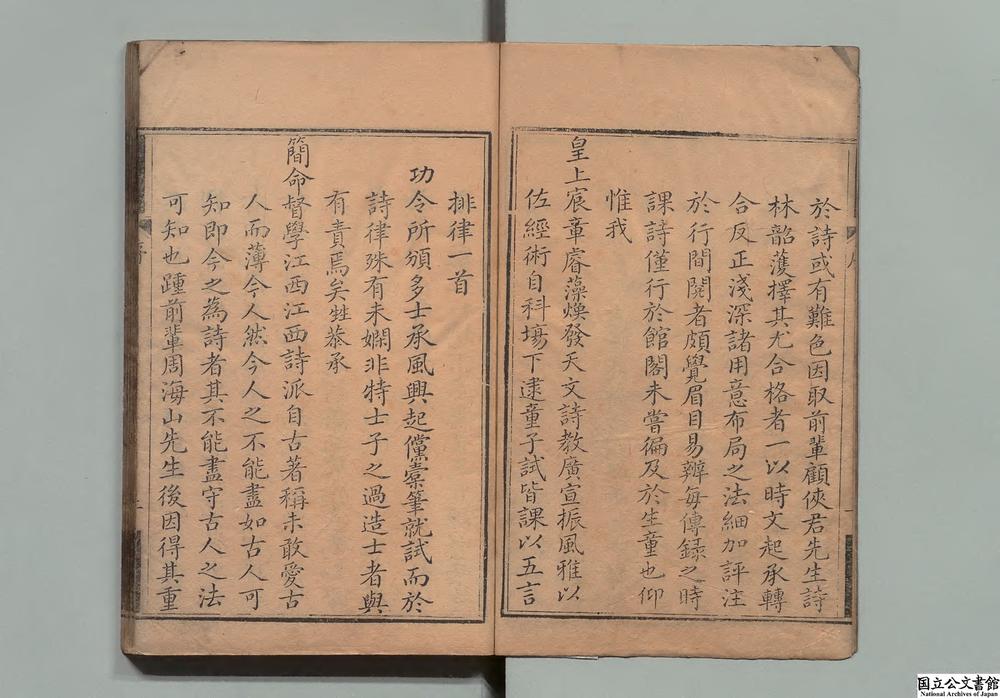 於詩或有難色因取前輩顧俠君先生詩
林韶濩擇其尤合格者一以時文起承轉
合反正淺深諸用意布局之法細加評注
於行間閱者頗覺眉目易辨每傳錄之時
課詩僅行於館閣未嘗徧及於生童也仰
惟我
皇上宸章睿藻煥發天文詩教廣宣振風雅以
佐經術自科場下逮童子試皆課以五言
排律一首
功令所頒多士承風興起儻橐筆就試而於
詩律殊有未嫺非特士子之過造士者與
有責焉矣甡恭承
簡命督學江西江西詩派自古著稱未敢愛古
人而薄今人然今人之不能盡如古人可
知即今之為詩者其不能盡守古人之法
可知也踵前輩周海山先生後因得其重
序
国立公文書館
National Archives of Japan